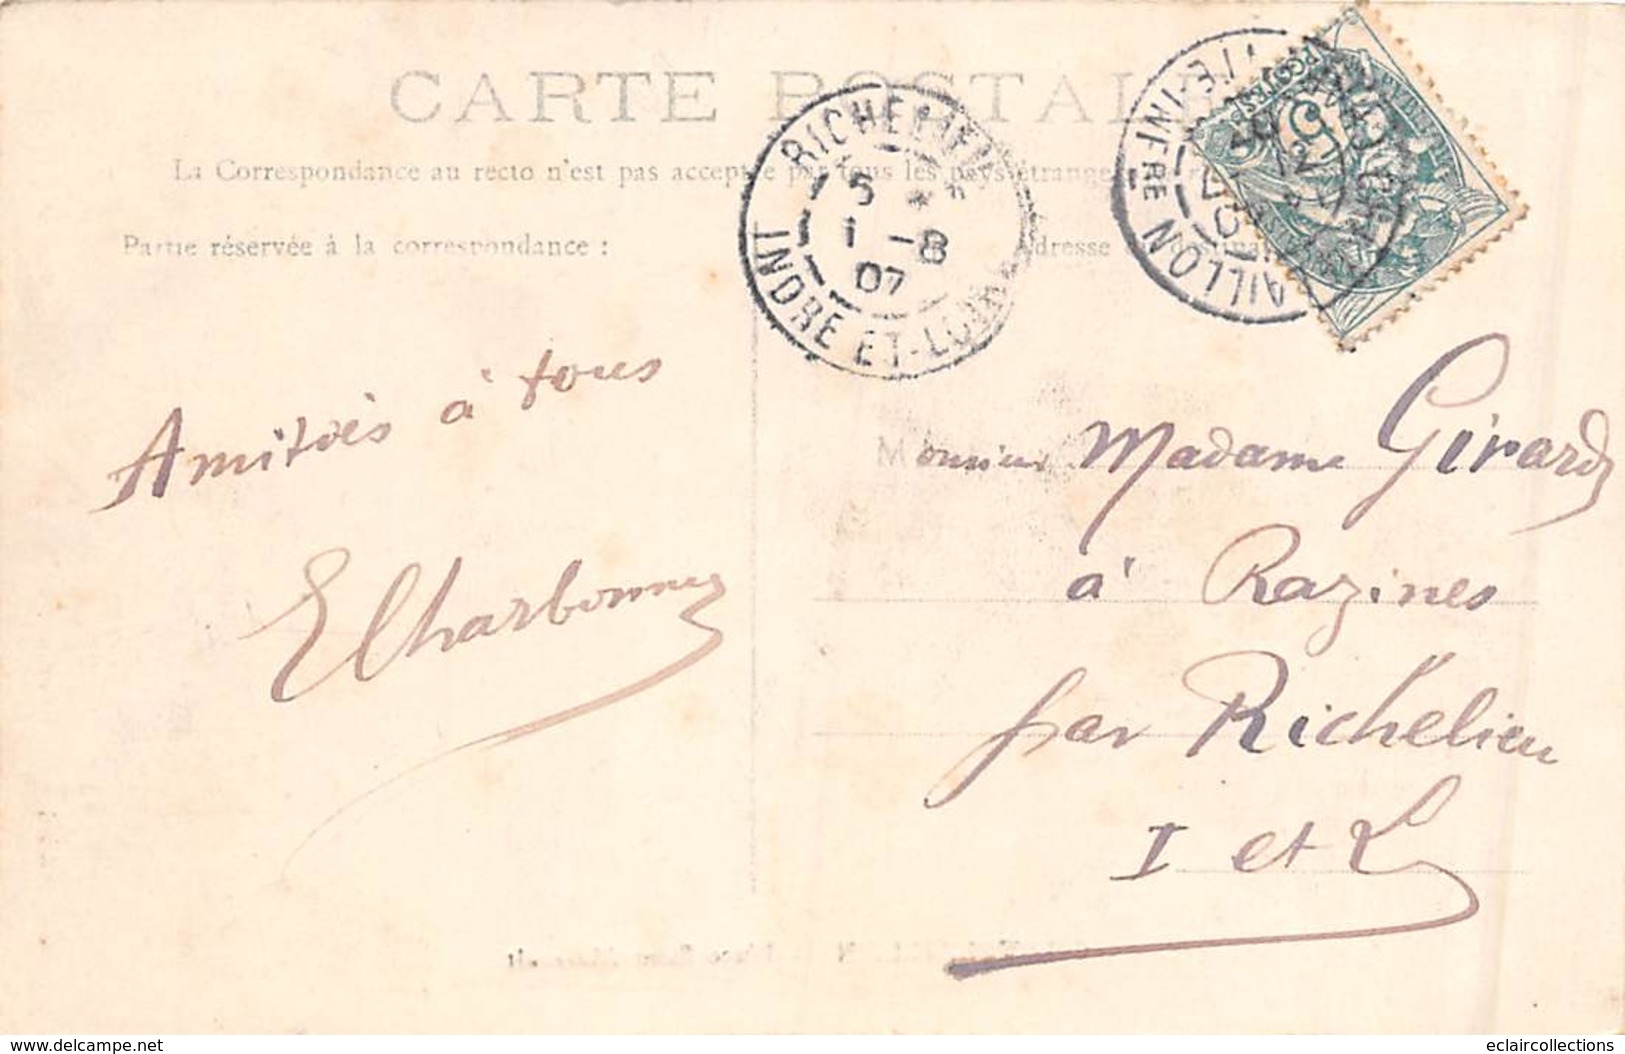 CARTE POSTALE
La Correspondance au recto n'est pas acceptée par tous les pays étrangers
Partie réservée à la correspondance :
Adresse
RICHELIEU
5
1 -8
07
INDRE ET-LOIRE
AILLON
INFRE
Amitiés à tous
E Charbonnier
Monsieur Madame Girard
à Razines
par Richelieu
I et L
delcampe.net
eclaircollections